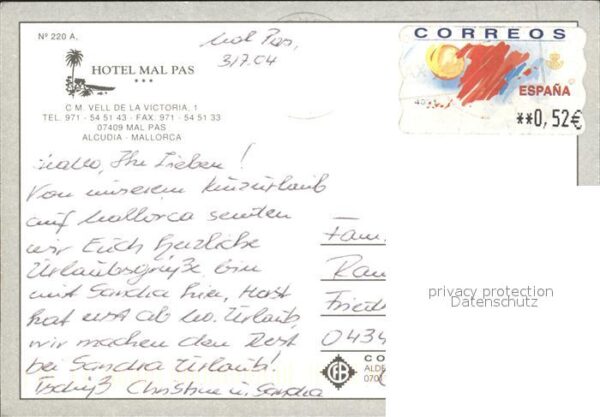 Nº 220 A.
HOTEL MAL PAS
***
C M. VELL DE LA VICTORIA, 1
TEL. 971 - 54 51 43 - FAX. 971 - 54 51 33
07409 MAL PAS
ALCUDIA - MALLORCA
Mal Pas,
3/7.04
CORREOS
ESPAÑA
**0,52€
Hallo, Ihr Lieben!
Von unserem Kurzurlaub
auf Mallorca senden
wir Euch herzliche
Urlaubsgrüße, bin
mit Sandra hier, Horst
hat erst ab Urlaub,
wir machen den Rest
bei Sandra Urlaub!
Tschüß Christine u. Sandra
Fam.
Ran
Fried
0434
privacy protection
Datenschutz
CO
ALDE
070